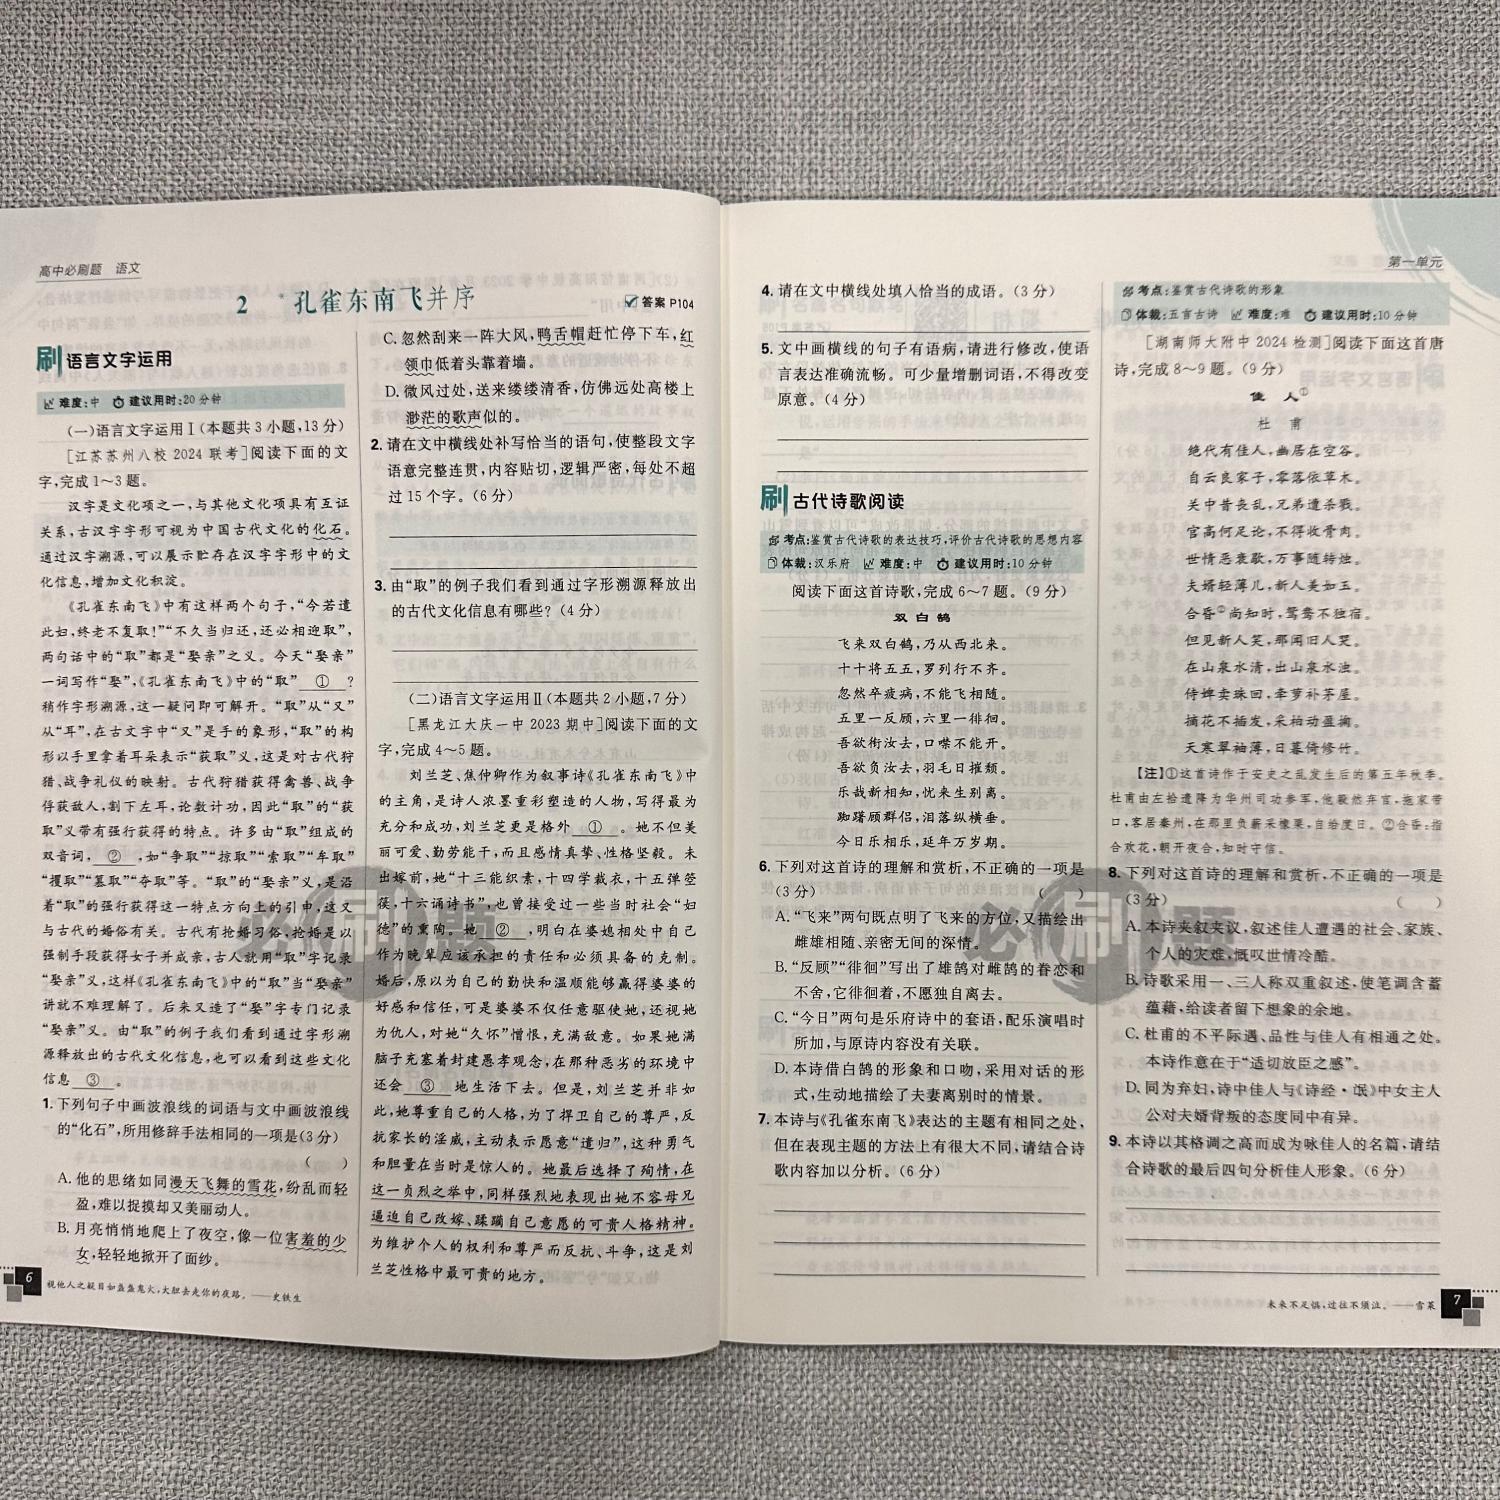 高中必刷题 语文
2 *孔雀东南飞并序
答案 P104
刷 语言文字运用
难度:中 建议用时:20分钟
(一)语言文字运用Ⅰ(本题共3小题,13分)
[江苏苏州八校2024联考]阅读下面的文
字,完成1~3题。
汉字是文化项之一,与其他文化项具有互证
关系,古汉字字形可视为中国古代文化的化石。
通过汉字溯源,可以展示贮存在汉字字形中的文
化信息,增加文化积淀。
《孔雀东南飞》中有这样两个句子,“今若遣
此妇,终老不复取!”“不久当归还,还必相迎取”,
两句话中的“取”都是“娶亲”之义。今天“娶亲”
一词写作“娶”,《孔雀东南飞》中的“取” ① ?
稍作字形溯源,这一疑问即可解开。“取”从“又”
从“耳”,在古文字中“又”是手的象形,“取”的构
形以手里拿着耳朵表示“获取”义,这是对古代狩
猎、战争礼仪的映射。古代狩猎获得禽兽、战争
俘获敌人,割下左耳,论数计功,因此“取”的“获
取”义带有强行获得的特点。许多由“取”组成的
双音词, ② ,如“争取”“掠取”“索取”“牟取”
“攫取”“篡取”“夺取”等。“取”的“娶亲”义,是沿
着“取”的强行获得这一特点方向上的引申,这又
与古代的婚俗有关。古代有抢婚习俗,抢婚是以
强制手段获得女子并成亲,古人就用“取”字记录
“娶亲”义,这样《孔雀东南飞》中的“取”当“娶亲”
讲就不难理解了。后来又造了“娶”字专门记录
“娶亲”义。由“取”的例子我们看到通过字形溯
源释放出的古代文化信息,也可以看到这些文化
信息 ③ 。
1. 下列句子中画波浪线的词语与文中画波浪线
的“化石”,所用修辞手法相同的一项是(3分)
( )
A. 他的思绪如同漫天飞舞的雪花,纷乱而轻
盈,难以捉摸却又美丽动人。
B. 月亮悄悄地爬上了夜空,像一位害羞的少
女,轻轻地掀开了面纱。
6 视他人之疑目如盏盏鬼火,大胆去走你的夜路。——史铁生
C. 忽然刮来一阵大风,鸭舌帽赶忙停下车,红
领巾低着头靠着墙。
D. 微风过处,送来缕缕清香,仿佛远处高楼上
渺茫的歌声似的。
2. 请在文中横线处补写恰当的语句,使整段文字
语意完整连贯,内容贴切,逻辑严密,每处不超
过15个字。(6分)
3. 由“取”的例子我们看到通过字形溯源释放出
的古代文化信息有哪些?(4分)
(二)语言文字运用Ⅱ(本题共2小题,7分)
[黑龙江大庆一中2023期中]阅读下面的文
字,完成4~5题。
刘兰芝、焦仲卿作为叙事诗《孔雀东南飞》中
的主角,是诗人浓墨重彩塑造的人物,写得最为
充分和成功,刘兰芝更是格外 ① 。她不但美
丽可爱、勤劳能干,而且感情真挚、性格坚毅。未
出嫁前,她“十三能织素,十四学裁衣,十五弹箜
篌,十六诵诗书”,也曾接受过一些当时社会“妇
德”的熏陶。她 ② ,明白在婆媳相处中自己
作为晚辈应该承担的责任和必须具备的克制。
婚后,原以为自己的勤快和温顺能够赢得婆婆的
好感和信任,可是婆婆不仅任意驱使她,还视她
为仇人,对她“久怀”憎恨,充满敌意。如果她满
脑子充塞着封建愚孝观念,在那种恶劣的环境中
还会 ③ 地生活下去。但是,刘兰芝并非如
此,她尊重自己的人格,为了捍卫自己的尊严,反
抗家长的淫威,主动表示愿意“遣归”,这种勇气
和胆量在当时是惊人的。她最后选择了殉情,在
这一贞烈之举中,同样强烈地表现出她不容母兄
逼迫自己改嫁、蹂躏自己意愿的可贵人格精神。
为维护个人的权利和尊严而反抗、斗争,这是刘
兰芝性格中最可贵的地方。
4. 请在文中横线处填入恰当的成语。(3分)
5. 文中画横线的句子有语病,请进行修改,使语
言表达准确流畅。可少量增删词语,不得改变
原意。(4分)
刷 古代诗歌阅读
考点:鉴赏古代诗歌的表达技巧,评价古代诗歌的思想内容
体裁:汉乐府 难度:中 建议用时:10分钟
阅读下面这首诗歌,完成6~7题。(9分)
双白鹄
飞来双白鹄,乃从西北来。
十十将五五,罗列行不齐。
忽然卒疲病,不能飞相随。
五里一反顾,六里一徘徊。
吾欲衔汝去,口噤不能开。
吾欲负汝去,羽毛日摧颓。
乐哉新相知,忧来生别离。
踟蹰顾群侣,泪落纵横垂。
今日乐相乐,延年万岁期。
6. 下列对这首诗的理解和赏析,不正确的一项是
(3分) ( )
A. “飞来”两句既点明了飞来的方位,又描绘出
雌雄相随、亲密无间的深情。
B. “反顾”“徘徊”写出了雄鹄对雌鹄的眷恋和
不舍,它徘徊着,不愿独自离去。
C. “今日”两句是乐府诗中的套语,配乐演唱时
所加,与原诗内容没有关联。
D. 本诗借白鹄的形象和口吻,采用对话的形
式,生动地描绘了夫妻离别时的情景。
7. 本诗与《孔雀东南飞》表达的主题有相同之处,
但在表现主题的方法上有很大不同,请结合诗
歌内容加以分析。(6分)
第一单元
考点:鉴赏古代诗歌的形象
体裁:五言古诗 难度:难 建议用时:10分钟
[湖南师大附中2024检测]阅读下面这首唐
诗,完成8~9题。(9分)
佳 人①
杜 甫
绝代有佳人,幽居在空谷。
自云良家子,零落依草木。
关中昔丧乱,兄弟遭杀戮。
官高何足论,不得收骨肉。
世情恶衰歇,万事随转烛。
夫婿轻薄儿,新人美如玉。
合昏②尚知时,鸳鸯不独宿。
但见新人笑,那闻旧人哭。
在山泉水清,出山泉水浊。
侍婢卖珠回,牵萝补茅屋。
摘花不插发,采柏动盈掬。
天寒翠袖薄,日暮倚修竹。
【注】①这首诗作于安史之乱发生后的第五年秋季。
杜甫由左拾遗降为华州司功参军,他毅然弃官,拖家带
口,客居秦州,在那里负薪采橡栗,自给度日。②合昏:指
合欢花,朝开夜合,知时守信。
8. 下列对这首诗的理解和赏析,不正确的一项是
(3分) ( )
A. 本诗夹叙夹议,叙述佳人遭遇的社会、家族、
个人的灾难,慨叹世情冷酷。
B. 诗歌采用一、三人称双重叙述,使笔调含蓄
蕴藉,给读者留下想象的余地。
C. 杜甫的不平际遇、品性与佳人有相通之处。
本诗作意在于“适切放臣之感”。
D. 同为弃妇,诗中佳人与《诗经·氓》中女主人
公对夫婿背叛的态度同中有异。
9. 本诗以其格调之高而成为咏佳人的名篇,请结
合诗歌的最后四句分析佳人形象。(6分)
未来不足惧,过往不须泣。——雪莱 7
必刷题
必刷题